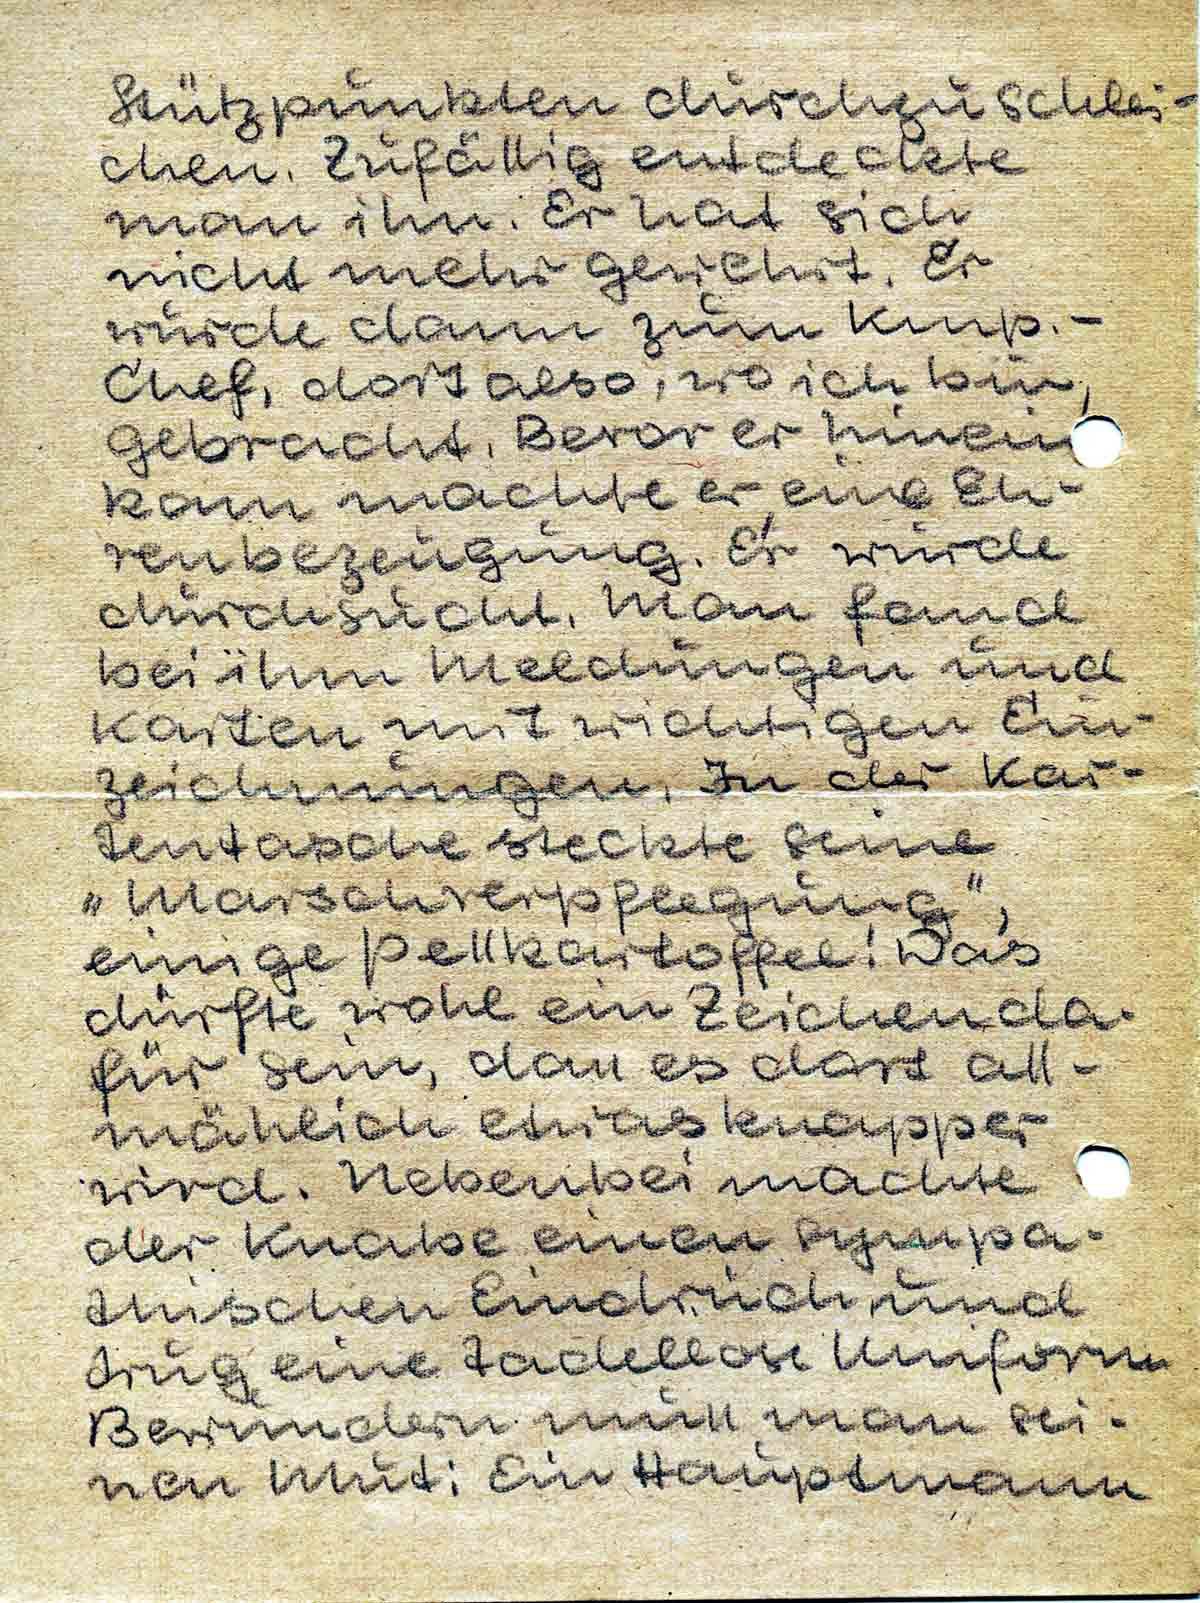 Stützpunkten durchzuschlei-
chen. Zufällig entdeckte
man ihn. Er hat sich
nicht mehr gewehrt. Er
wurde dann zum Kmp.-
Chef, dort also, wo ich bin,
gebracht. Bevor er hinein
kam machte er eine Eh-
renbezeugung. Er wurde
durchsucht. Man fand
bei ihm Meldungen und
Karten mit wichtigen Ein-
zeichnungen. In der Kar-
tentasche steckte seine
„Marschverpflegung",
einige Pellkartoffel! Das
dürfte wohl ein Zeichen da-
für sein, dass es dort all-
mählich etwas knapper
wird. Nebenbei machte
der Knabe einen sympa-
thischen Eindruck und
trug eine tadellose Uniform
Bewundern muss man sei-
nen Mut: Ein Hauptmann